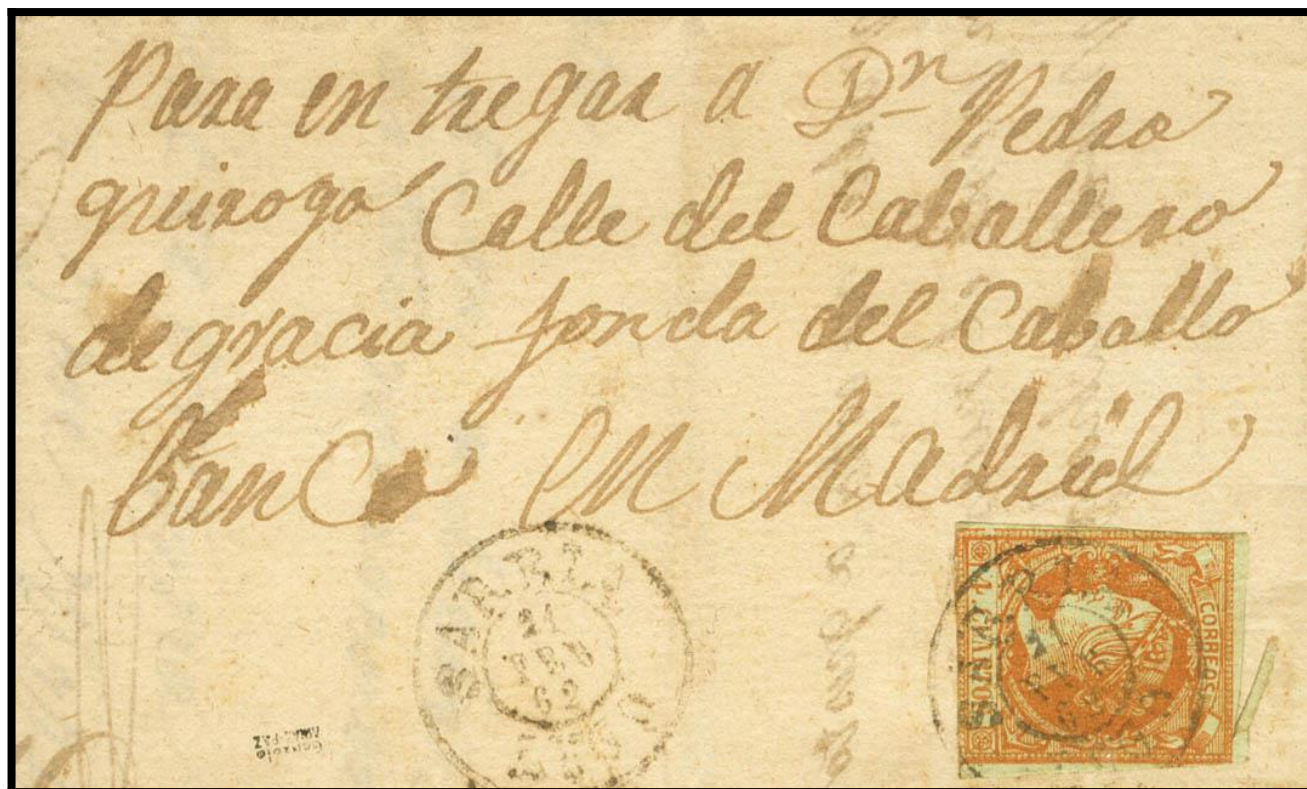 Para en tregar a Dn Pedro
quiroga Calle del Caballero
de gracia fonda del Caballo
blanco en Madrid
SARRIA
21
FEB
62
LUGO
4 CUARTOS
CORREOS
21
62